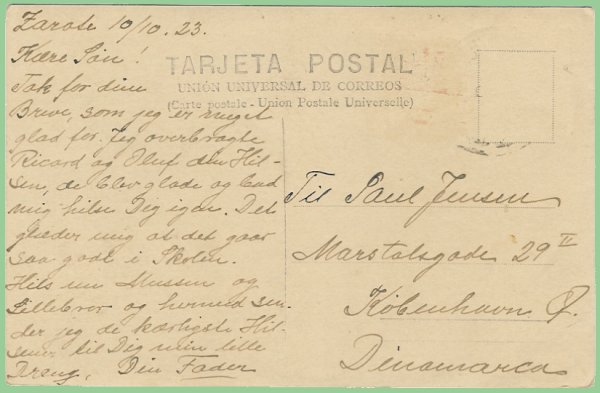 Zarate 10/10. 23.
Kære Søn!
Tak for dine
Breve, som jeg er meget
glad for. Jeg overbragte
Ricard og Oluf din Hil-
sen, de blev glade og bad
mig hilse Dig igen. Det
glæder mig at det gaar
saa godt i Skolen.
Hils nu Mussen og
Lillebror og hermed sen-
der jeg de kærligste Hil-
sener til Dig min lille
Dreng. Din Fader
TARJETA POSTAL
UNIÓN UNIVERSAL DE CORREOS
(Carte postale - Union Postale Universelle)
Til Paul Jensen
Marstalsgade 29 II
København Ø.
Dinamarca